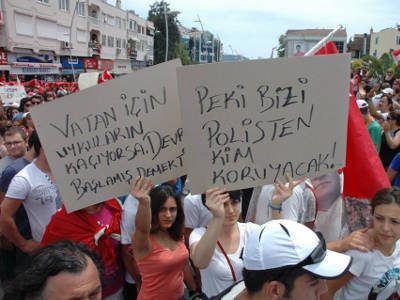 VATAN İÇİN
UYKULARIN
KAÇIYORSA, DEVRİM
BAŞLAMIŞ DEMEKTİR
PEKİ BİZİ
POLİSTEN
KİM
KORUYACAK!